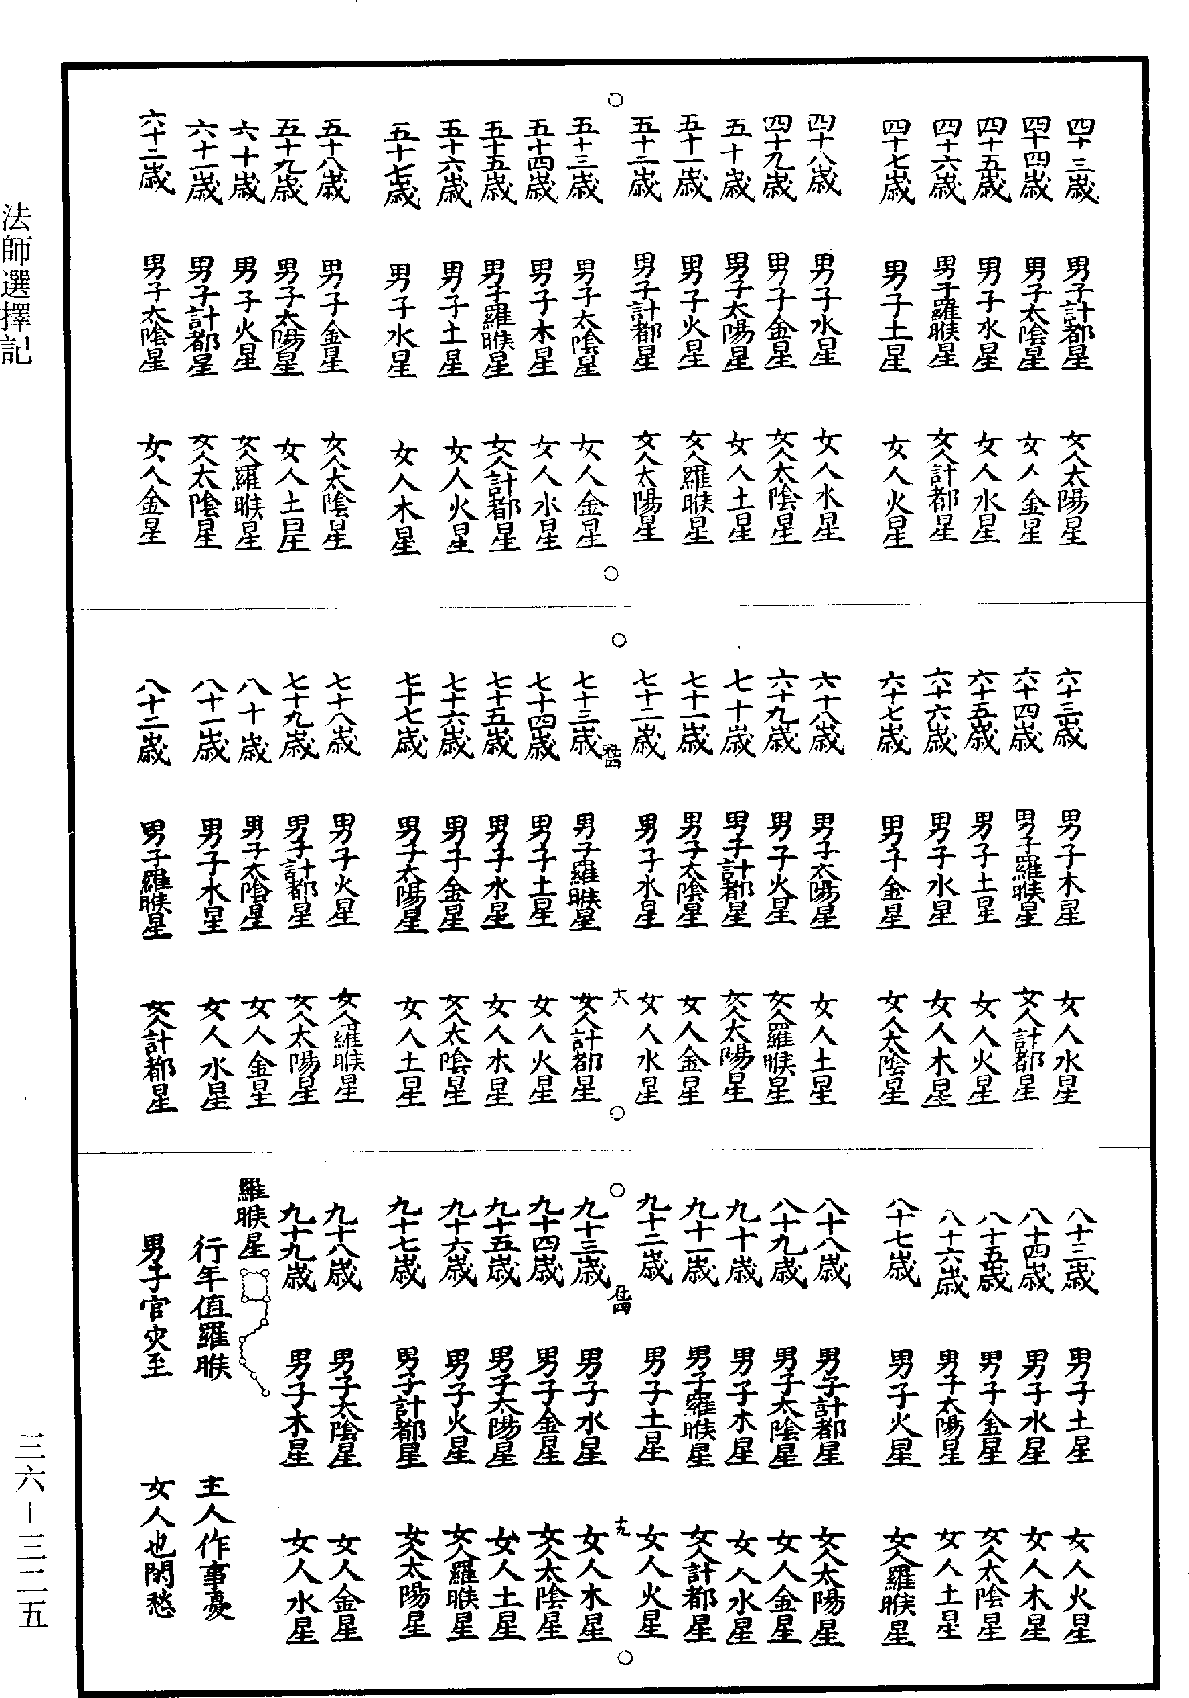 法師選擇記
四十三歲 男子計都星 女人太陽星
四十四歲 男子太陰星 女人金星
四十五歲 男子水星 女人水星
四十六歲 男子羅睺星 女人計都星
四十七歲 男子土星 女人火星
四十八歲 男子水星 女人水星
四十九歲 男子金星 女人太陰星
五十歲 男子太陽星 女人土星
五十一歲 男子火星 女人羅睺星
五十二歲 男子計都星 女人太陽星
五十三歲 男子太陰星 女人金星
五十四歲 男子木星 女人水星
五十五歲 男子羅睺星 女人計都星
五十六歲 男子土星 女人火星
五十七歲 男子水星 女人木星
五十八歲 男子金星 女人太陰星
五十九歲 男子太陽星 女人土星
六十歲 男子火星 女人羅睺星
六十一歲 男子計都星 女人太陰星
六十二歲 男子太陰星 女人金星
六十三歲 男子木星 女人水星
六十四歲 男子羅睺星 女人計都星
六十五歲 男子土星 女人火星
六十六歲 男子水星 女人木星
六十七歲 男子金星 女人太陰星
六十八歲 男子太陽星 女人土星
六十九歲 男子火星 女人羅睺星
七十歲 男子計都星 女人太陽星
七十一歲 男子太陰星 女人金星
七十二歲 男子水星 女人水星
七十三歲 男子羅睺星 女人計都星
七十四歲 男子土星 女人火星
七十五歲 男子水星 女人木星
七十六歲 男子金星 女人太陰星
七十七歲 男子太陽星 女人土星
七十八歲 男子火星 女人羅睺星
七十九歲 男子計都星 女人太陽星
八十歲 男子太陰星 女人金星
八十一歲 男子水星 女人水星
八十二歲 男子羅睺星 女人計都星
八十三歲 男子土星 女人火星
八十四歲 男子水星 女人木星
八十五歲 男子金星 女人太陰星
八十六歲 男子太陽星 女人土星
八十七歲 男子火星 女人羅睺星
八十八歲 男子計都星 女人太陽星
八十九歲 男子太陰星 女人金星
九十歲 男子木星 女人水星
九十一歲 男子羅睺星 女人計都星
九十二歲 男子土星 女人火星
九十三歲 男子水星 女人木星
九十四歲 男子金星 女人太陰星
九十五歲 男子太陽星 女人土星
九十六歲 男子火星 女人羅睺星
九十七歲 男子計都星 女人太陽星
九十八歲 男子太陰星 女人金星
九十九歲 男子木星 女人水星
羅睺星
行年值羅睺 主人作事憂
男子官灾至 女人也閉愁
三六－三二五